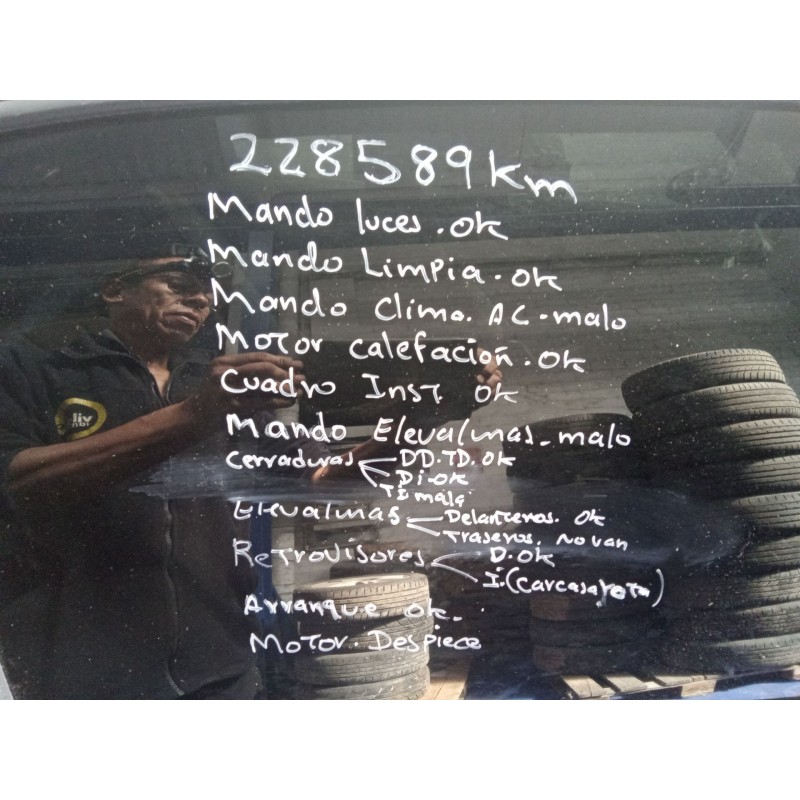 228589 km
Mando luces . ok
Mando Limpia . ok
Mando Clima. AC - malo
Motor calefacion . ok
Cuadro Inst ok
Mando Elevalunas - malo
Cerraduras DD.TD.ok
Di-ok
TI malo
Elevalunas Delanteros. ok
Traseros. No van
Retrovisores D. ok
I. (carcasa rota)
Arranque ok.
Motor. Despiece